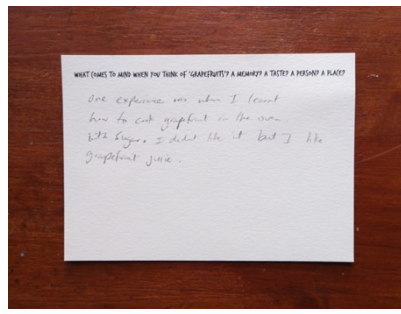 WHAT COMES TO MIND WHEN YOU THINK OF 'GRAPEFRUITS'? A MEMORY? A TASTE? A PERSON? A PLACE?
One experience was when I learnt
how to cook grapefruit in the oven
with sugar. I didnt like it but I like
grapefruit juice.